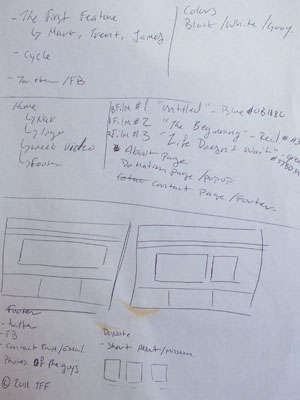 - The First Feature
↳ Mark, Trent, James
- Cycle
- Twitter/FB
Colors
Black/White/Gray
Home
↳ Nav
↳ logo
↳ week video
↳ Footer
Film #1 "Untitled" - Blue
Film #2 "The Beginning" - Red
Film #3 "Life Design & Work"
About page
Donation Page/popup
Contact Page/Footer
Footer
- Twitter
- FB
- Contact Form/Email
Photos of the guys.
© 2011 TFF
Donate
- Short About/mission